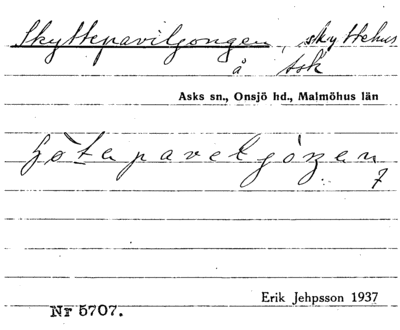 Skyttepaviljongen, skyttehus
å Ask
Asks sn., Onsjö hd., Malmöhus län
7
Erik Jehpsson 1937
Nr 5707.